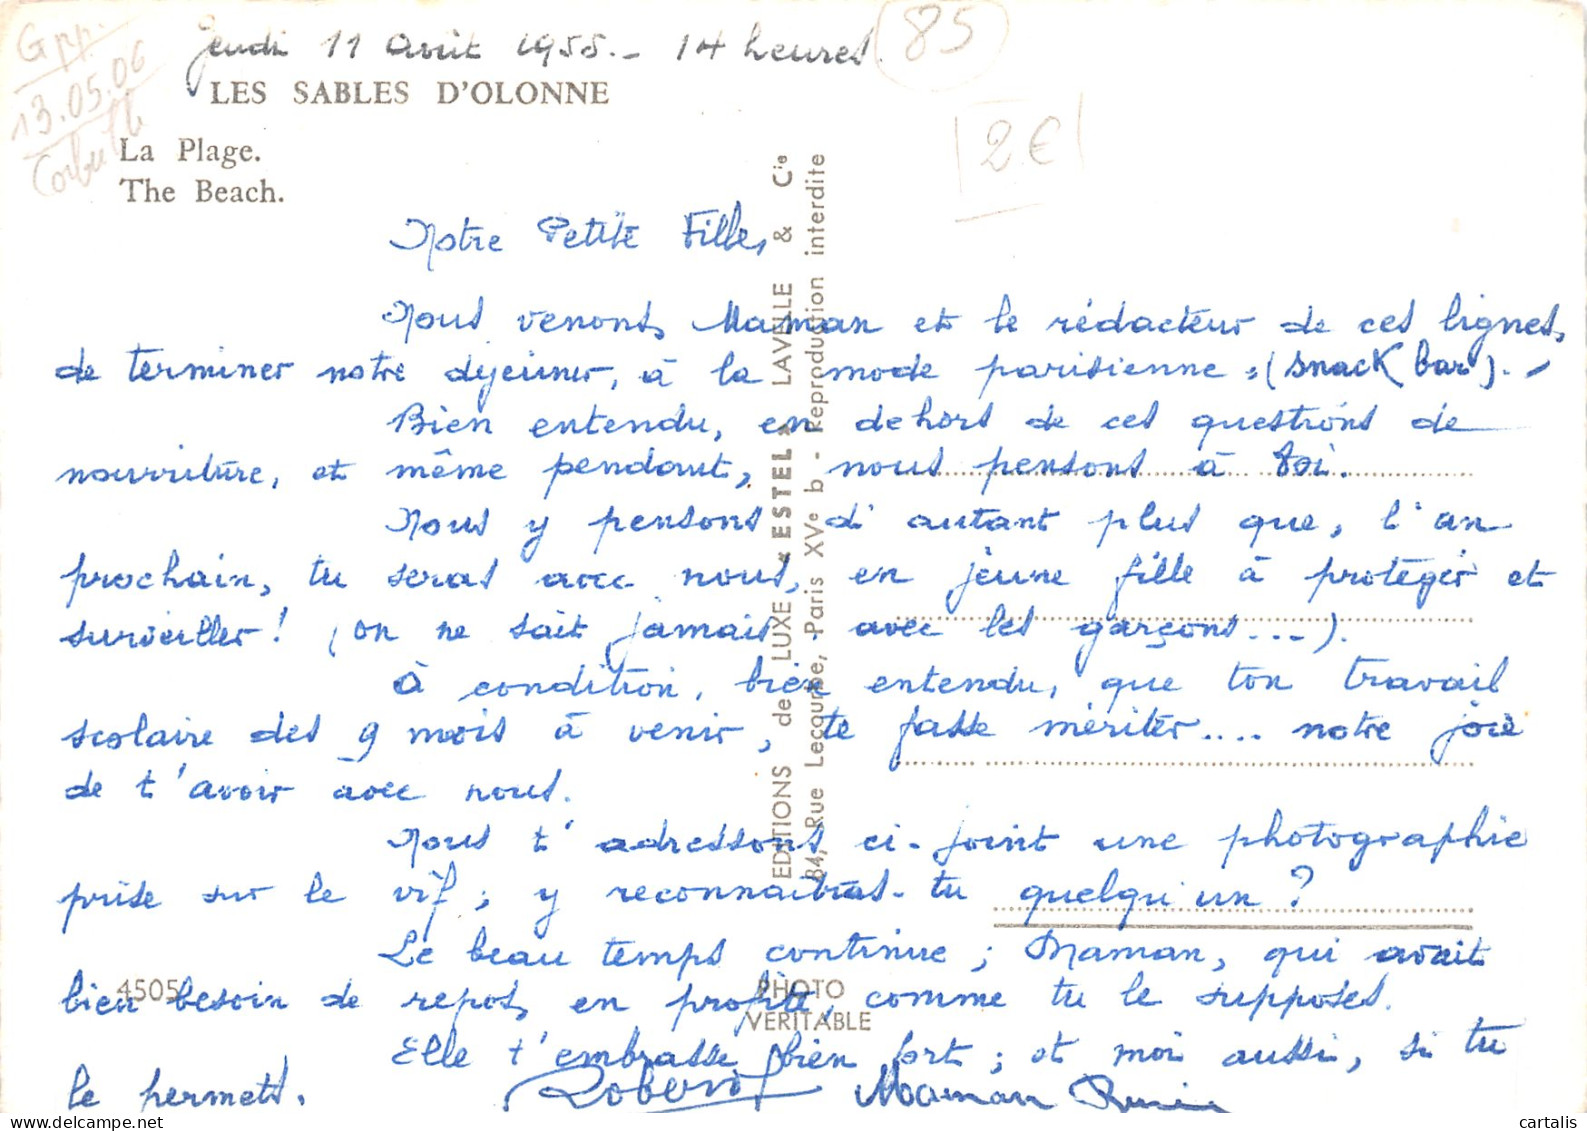 Gpp.
13.05.06
jeudi 11 août 1955.- 14 heures.
85
LES SABLES D'OLONNE
2€
La Plage.
The Beach.
Notre Petite Fille,
Nous venons, Maman et le rédacteur de ces lignes,
de terminer notre déjeuner, à la mode parisienne (snack bar).-
Bien entendu, en dehors de ces questions de
nourriture, et même pendant, nous pensons à toi.
Nous y pensons d'autant plus que, l'an
prochain, tu seras avec nous, en jeune fille à protéger et
surveiller! (on ne sait jamais avec les garçons...).
À condition, bien entendu, que ton travail
scolaire des 9 mois à venir, te fasse mériter.... notre joie
de t'avoir avec nous.
Nous t'adressons ci-joint une photographie
prise sur le vif; y reconnaitras-tu quelqu'un?
Le beau temps continue; Maman, qui avait
bien besoin de repos, en profite, comme tu le supposes.
Elle t'embrasse bien fort; et moi aussi, si tu
le permets.
Maman
EDITIONS de LUXE "ESTEL" LAVELLE & Cie
84, Rue Lecourbe, Paris XVe b - Reproduction interdite
4505
PHOTO
VERITABLE
cartalis